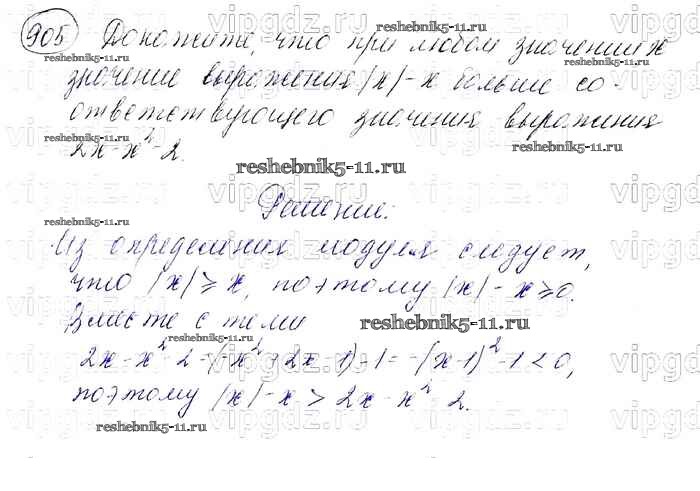 905 Докажите, что при любом значении x
значение выражения |x|-x больше со-
ответствующего значения выражения
2x-x²-2.
Решение:
Из определения модуля следует,
что |x|⩾x, поэтому |x|-x⩾0.
Вместе с тем
2x-x²-2=(-x²+2x-1)-1=-(x-1)²-1<0,
поэтому |x|-x>2x-x²-2.
reshebnik5-11.ru
vipgdz.ru